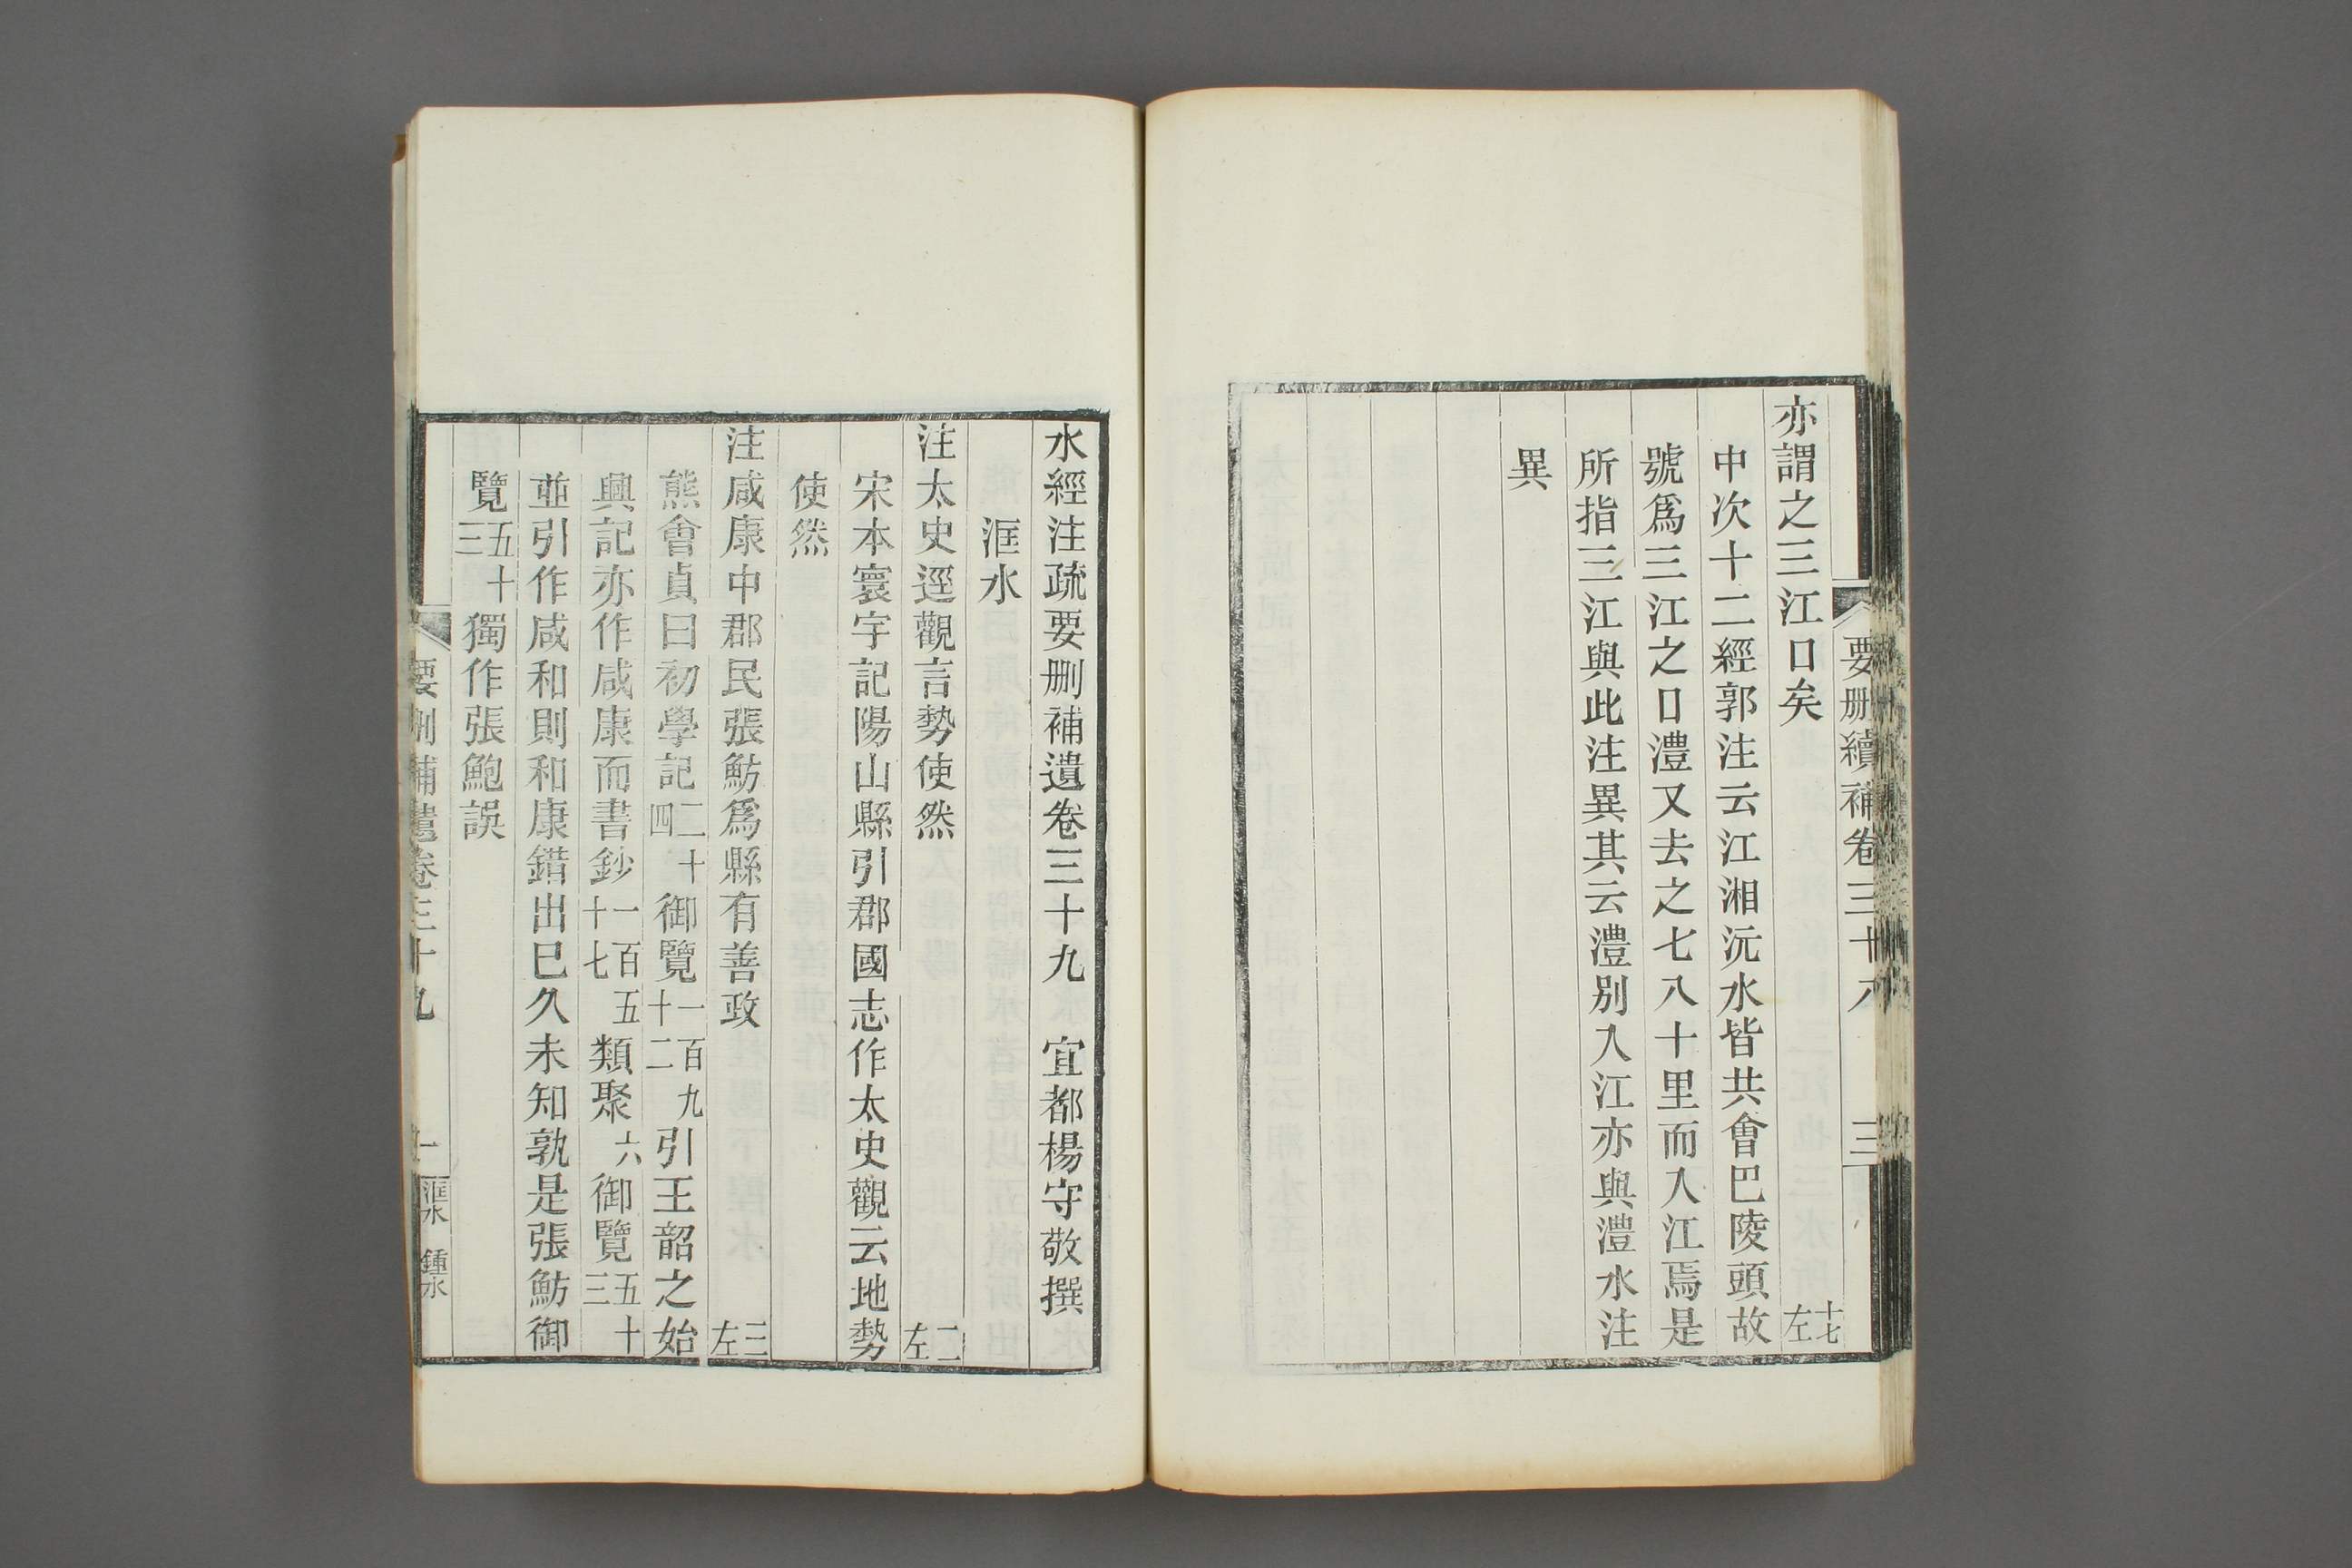 要刪續補卷三十八
三
亦謂之三江口矣十七左
中次十二經郭注云江湘沅水皆共會巴陵頭故
號爲三江之口澧又去之七八十里而入江焉是
所指三江與此注異其云澧別入江亦與澧水注
異
水經注疏要刪補遺卷三十九　宜都楊守敬撰
洭水
注太史逕觀言勢使然二左
宋本寰宇記陽山縣引郡國志作太史觀云地勢
使然
注咸康中郡民張魴爲縣有善政三左
熊會貞曰初學記二十四御覽一百九十二引王韶之始
興記亦作咸康而書鈔一百五十七類聚六御覽五十三
並引作咸和則和康錯出已久未知孰是張魴御
覽五十三獨作張鮑誤
要刪補遺卷三十九
一
洭水　鍾水